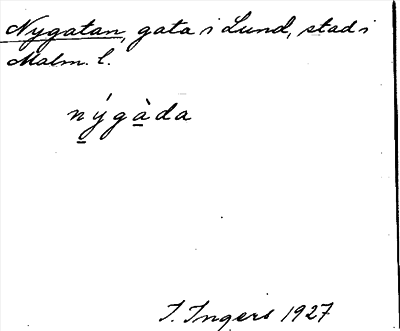 Nygatan, gata i Lund, stad i
Malm. l.
nýgàda
I. Ingers 1927